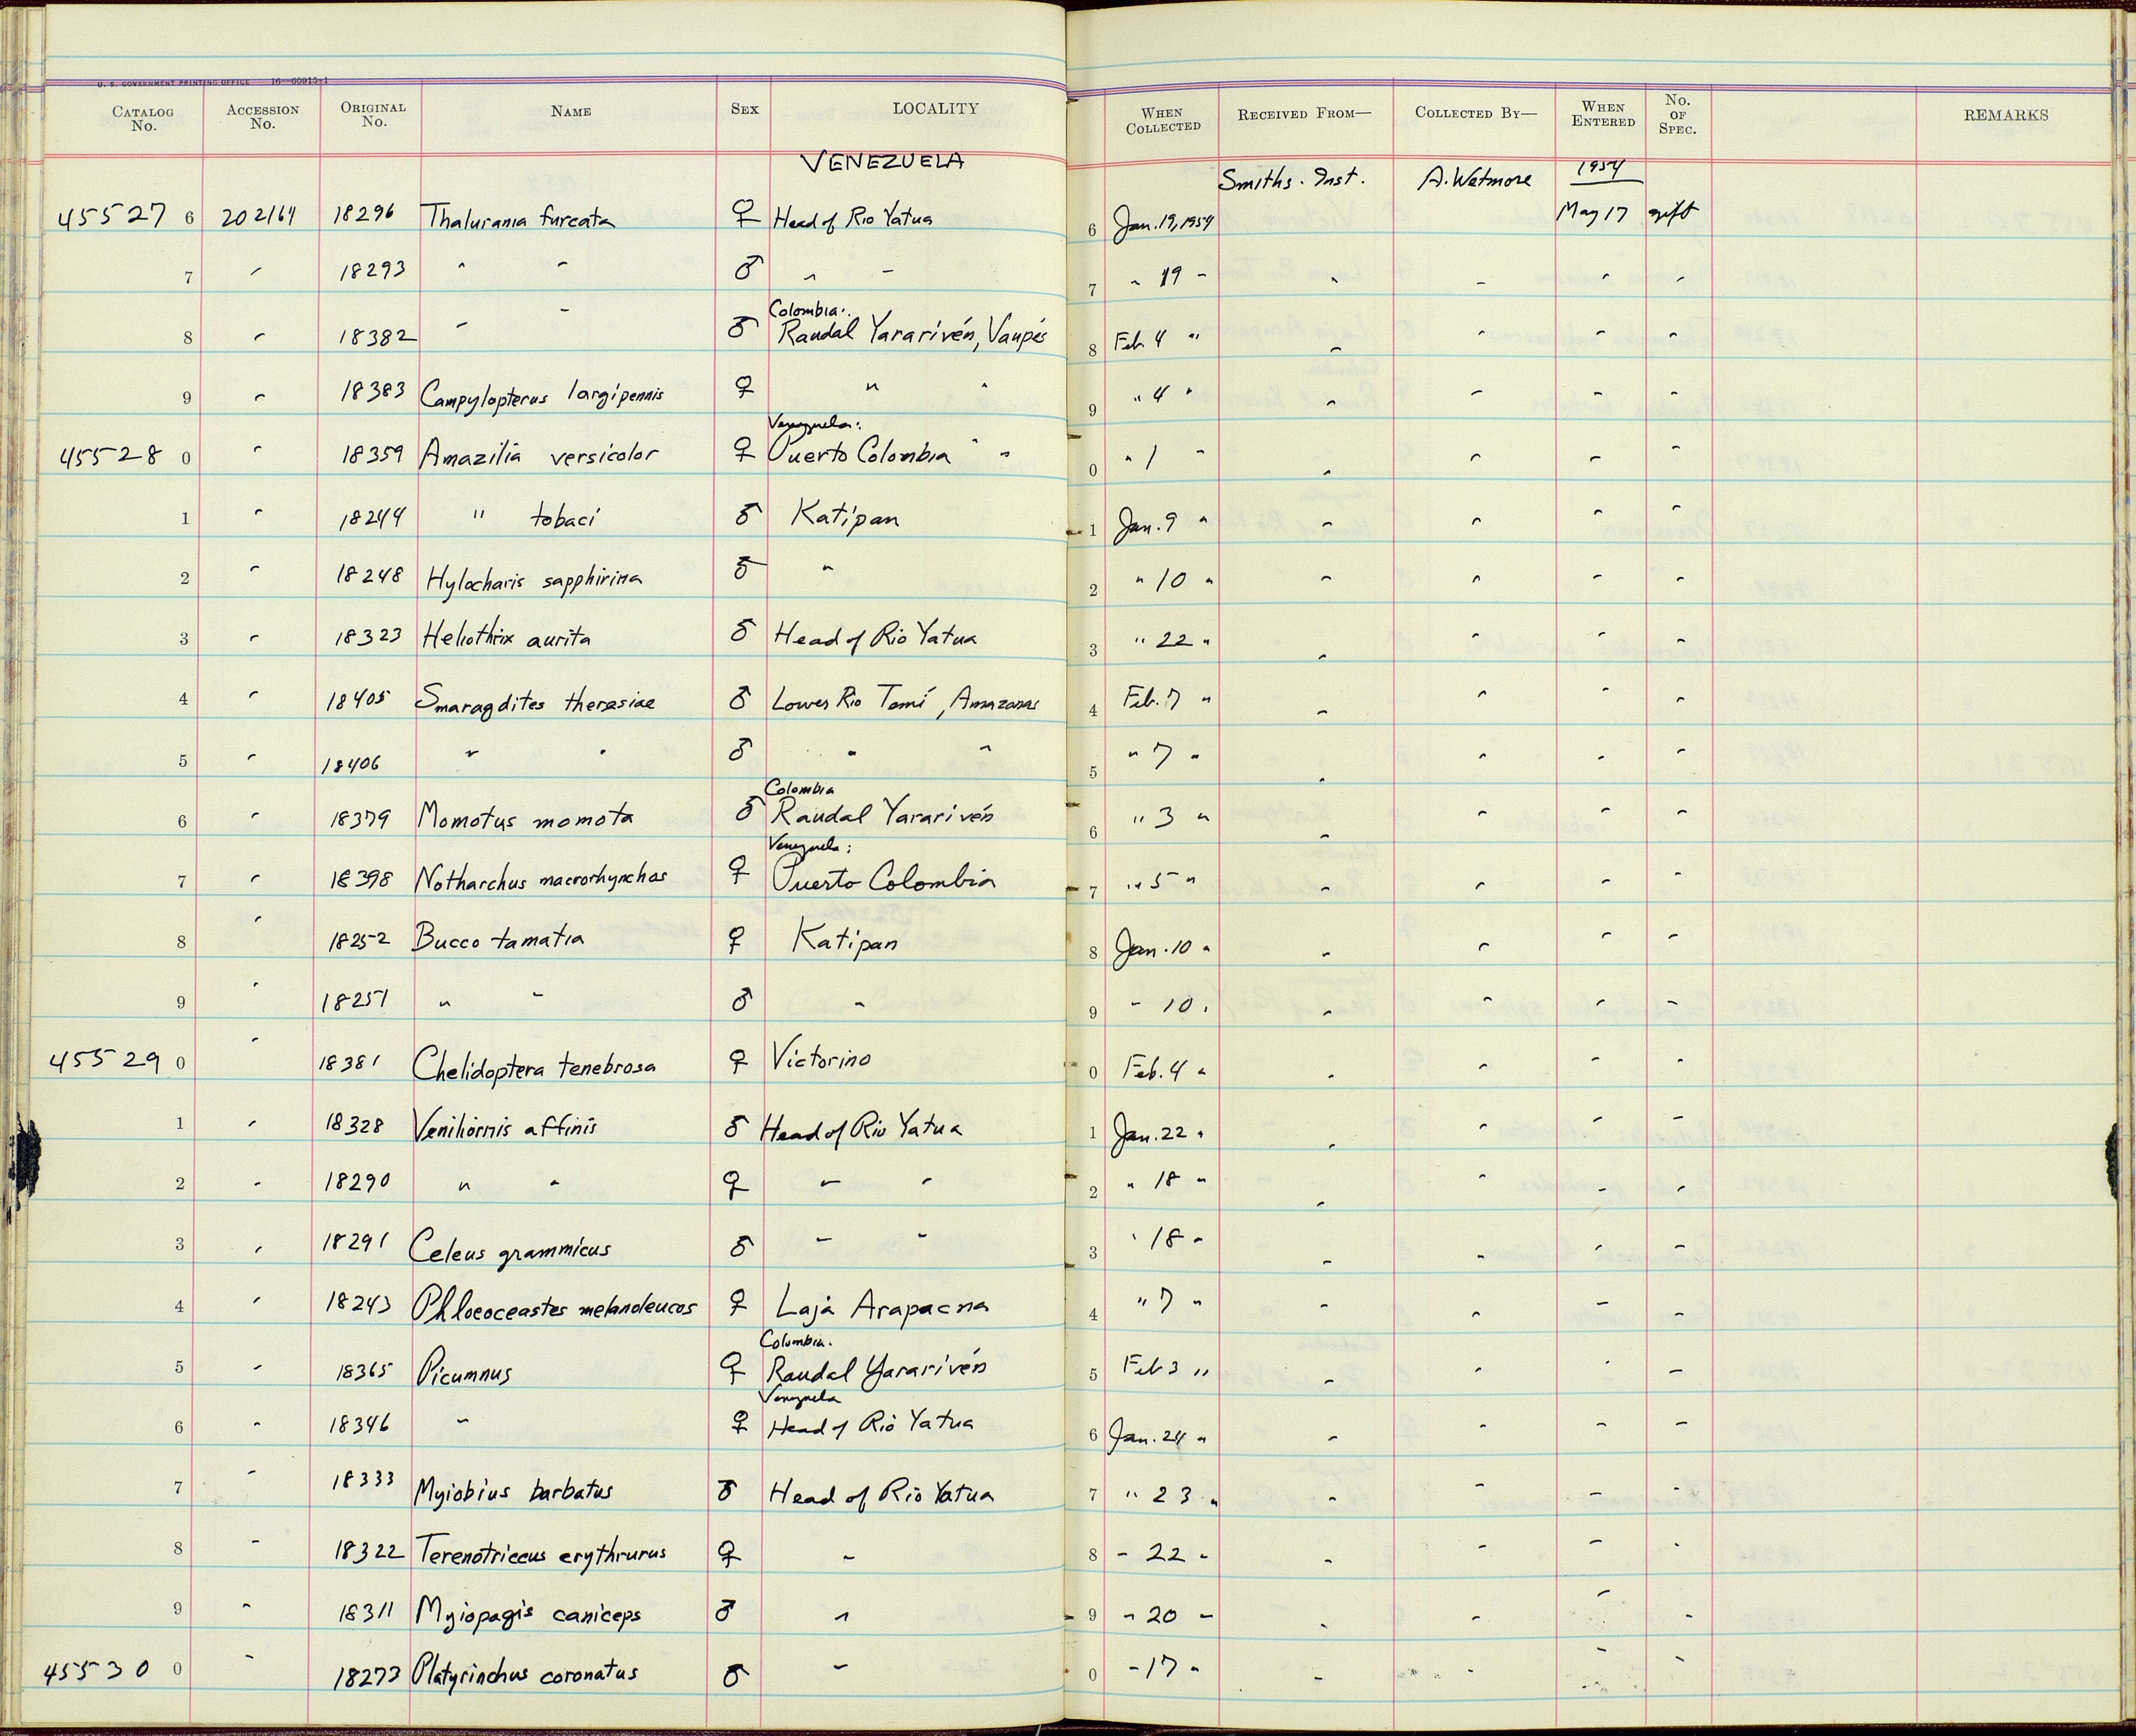 U. S. GOVERNMENT PRINTING OFFICE 16—60915-1
CATALOG No. ACCESSION No. ORIGINAL No. NAME SEX LOCALITY WHEN COLLECTED RECEIVED FROM— COLLECTED BY— WHEN ENTERED No. OF SPEC. REMARKS
VENEZUELA Smiths. Inst. A. Wetmore 1954
45527 6 202164 18296 Thalurania furcata ♀ Head of Rio Yatua 6 Jan. 19, 1954 May 17 gift
7 " 18293 " " ♂ " " 7 " 19 " " " " "
Colombia:
8 " 18382 " " ♂ Raudal Yararivén, Vaupés 8 Feb. 4 " " " " "
9 " 18383 Campylopterus largipennis ♀ " " 9 " 4 " " " " "
Venezuela:
45528 0 " 18359 Amazilia versicolor ♀ Puerto Colombia " " 0 " 1 " " " " "
1 " 18244 " tobaci ♂ Katipan 1 Jan. 9 " " " " "
2 " 18248 Hylocharis sapphirina ♂ " 2 " 10 " " " " "
3 " 18323 Heliothrix aurita ♂ Head of Rio Yatua 3 " 22 " " " " "
4 " 18405 Smaragdites theresiae ♂ Lower Rio Temí, Amazonas 4 Feb. 7 " " " " "
5 " 18406 " " ♂ " " 5 " 7 " " " " "
Colombia
6 " 18379 Momotus momota ♂ Raudal Yararivén 6 " 3 " " " " "
Venezuela:
7 " 18398 Notharchus macrorhynchos ♀ Puerto Colombia 7 " 5 " " " " "
8 " 18252 Bucco tamatia ♀ Katipan 8 Jan. 10 " " " " "
9 " 18251 " " ♂ " 9 " 10 " " " " "
45529 0 " 18381 Chelidoptera tenebrosa ♀ Victorino 0 Feb. 4 " " " " "
1 " 18328 Veniliornis affinis ♂ Head of Rio Yatua 1 Jan. 22 " " " " "
2 " 18290 " " ♀ " " 2 " 18 " " " " "
3 " 18291 Celeus grammicus ♂ " " 3 " 18 " " " " "
4 " 18243 Phloeoceastes melanoleucos ♀ Laja Arapacna 4 " 7 " " " " "
Colombia.
5 " 18365 Picumnus ♀ Raudal Yararivén 5 Feb 3 " " " " "
Venezuela
6 " 18346 " ♀ Head of Rio Yatua 6 Jan. 24 " " " " "
7 " 18333 Myiobius barbatus ♂ Head of Rio Yatua 7 " 23 " " " " "
8 " 18322 Terenotriccus erythrurus ♀ " 8 " 22 " " " " "
9 " 18311 Myiopagis caniceps ♂ " 9 " 20 " " " " "
45530 0 " 18273 Platyrinchus coronatus ♂ " 0 " 17 " " " " "